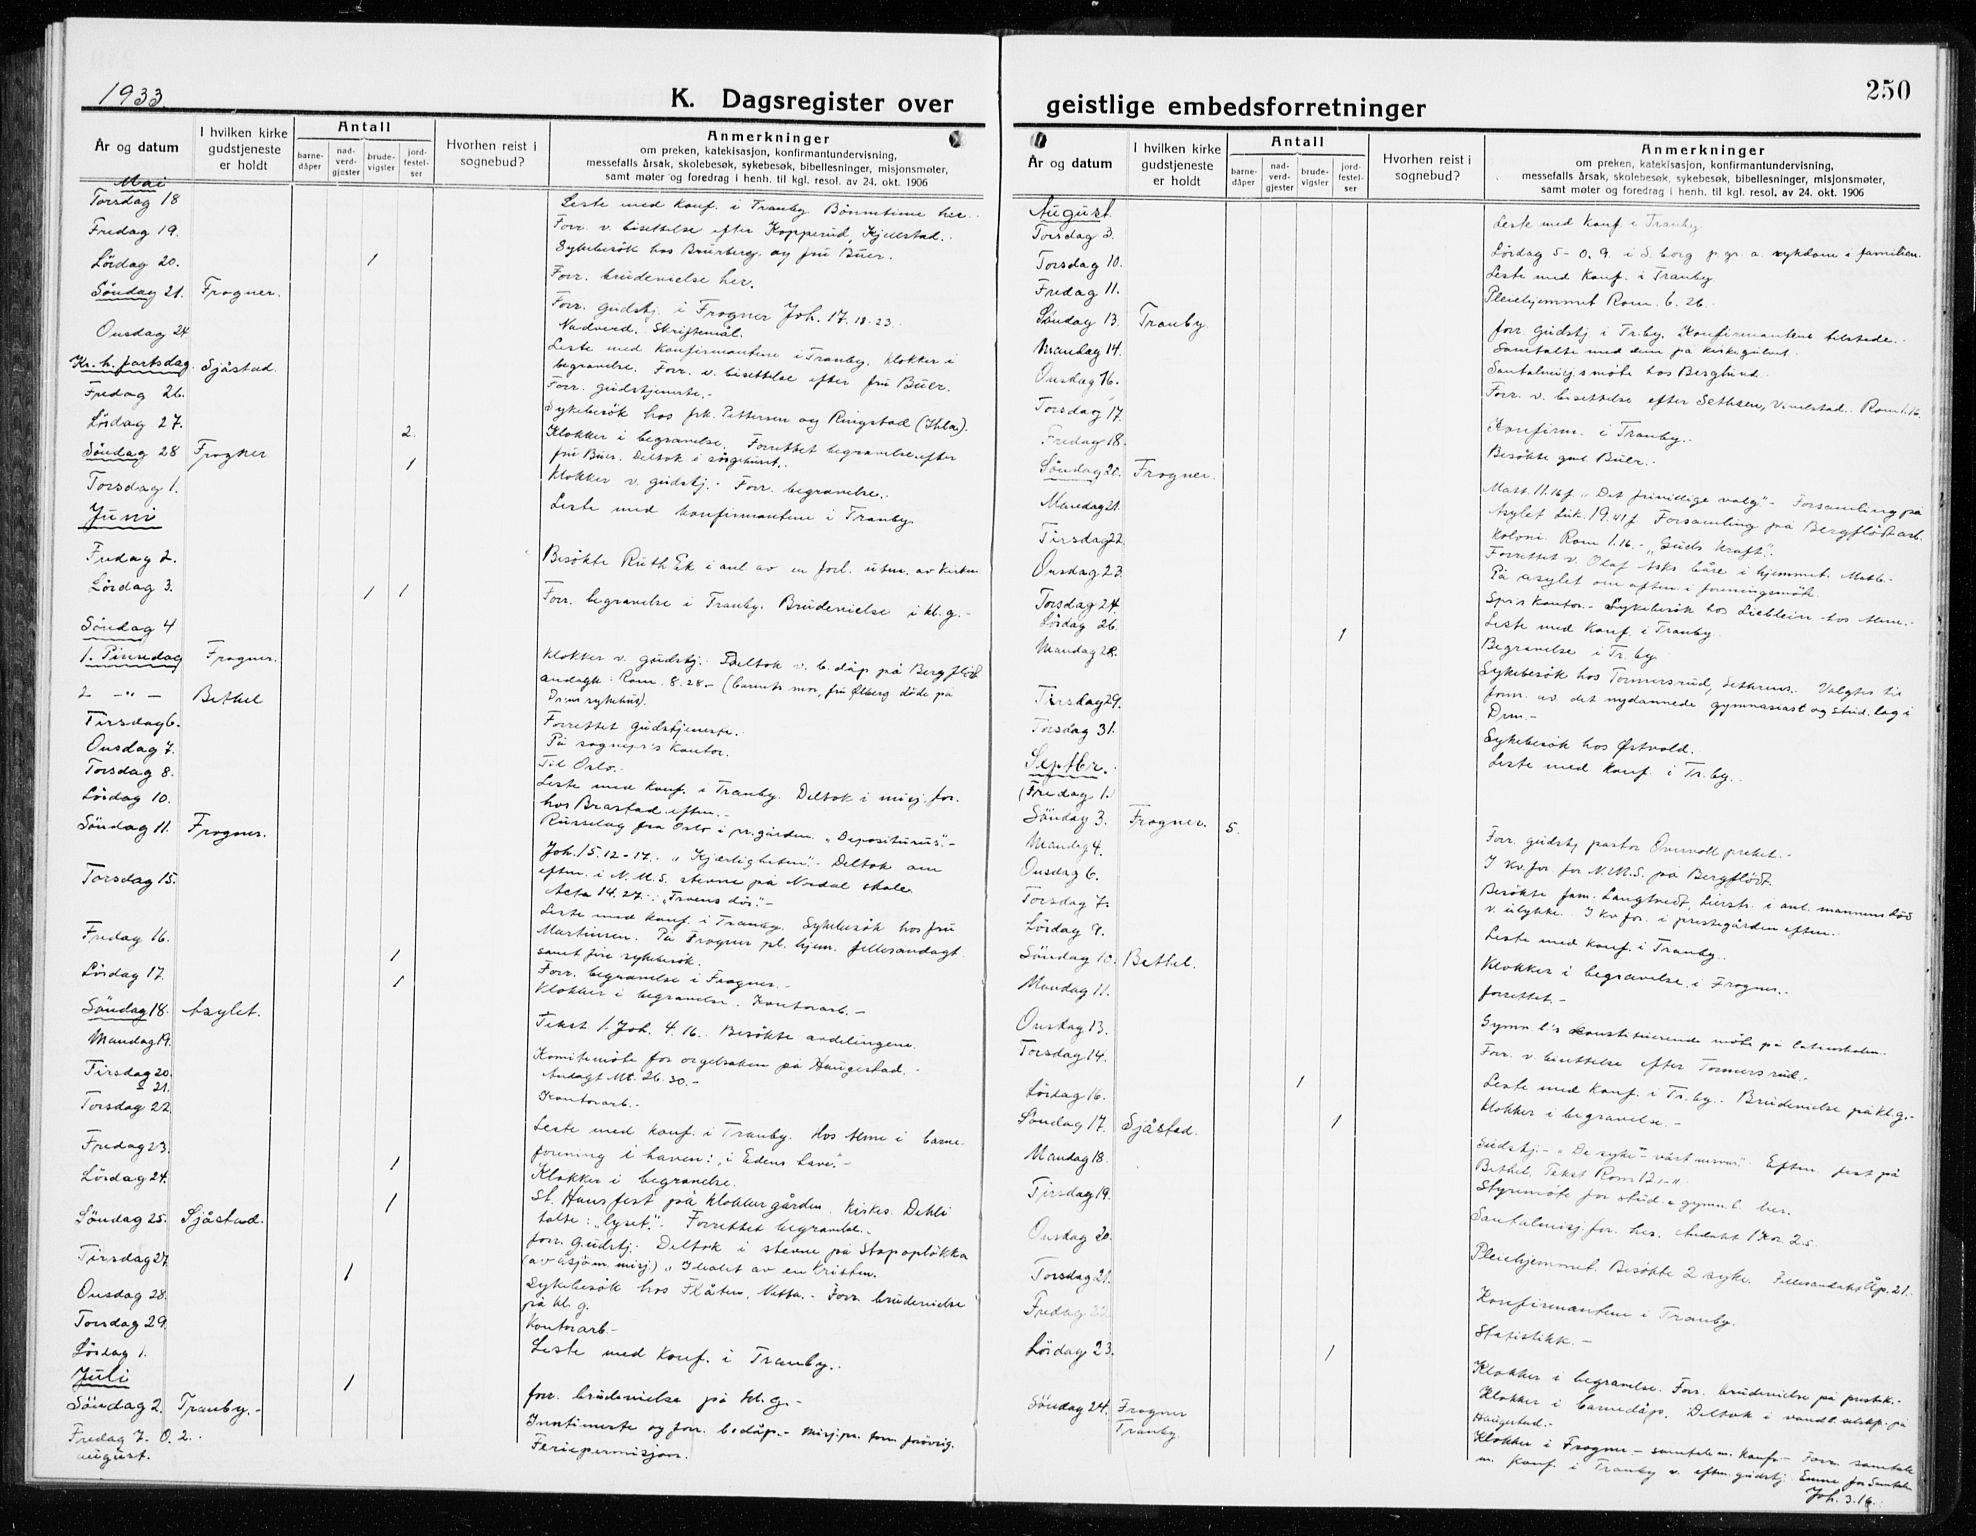 1933.
K. Dagsregister over
År og datum
I hvilken kirke
gudstjeneste
er holdt
Antall
barne-
dåper
nad-
verd-
gjester
brude-
vigsler
jord-
festel-
ser
Hvorhen reist i
sognebud?
Anmerkninger
om preken, katekisasjon, konfirmantundervisning,
messefalls årsak, skolebesøk, sykebesøk, bibellesninger, misjonsmøter,
samt møter og foredrag i henh. til kgl. resol. av 24. okt. 1906
Mai
Torsdag 18 Leste med konf. i Tranby. Bönnetime her.
Fredag 19. Forr. v. bisettelse efter Kopperud, Kjellstad.
Lördag 20. 1 Sykebesök hos Brurberg og fru Buer.
Forr. brudevielse her.
Söndag 21. Frogner. Forr. gudstj. i Frogner Joh. 17. 18-23.
Onsdag 24 Nadverd. Skriftemål.
Leste med konfirmantene i Tranby. Klokker i
Kr. h. fartsdag. Sjåstad. begravelse. Forr. v. bisettelse efter fru Buer.
Fredag 26. Forr. gudstjeneste.-
Lördag 27. 2. Sykebesök hos frk. Pettersen og Ringstad
Klokker i begravelse. Forrettet begravelse efter
Söndag 28 Frogner 1 fru Buer. Deltok i sörgehuset.
Torsdag 1. Klokker v. gudstj. Forr. begravelse.
Juni Leste med konfirmantene i Tranby.
Fredag 2. Besökte Ruth Ek i anl. av en forl. utm. av kirken
Lördag 3. 1 1 Forr. begravelse i Tranby. Brudevielse i kl. g.-
Söndag 4
1. Pinsedag Frogner. Klokker v. gudstj. Deltok v. b. dåp på Bergflödt
andagt: Rom. 8.28- (barnets mor, fru Ølberg döde på
2 -"- Bethel Drm sykehus).
Tirsdag 6. Forrettet gudstjeneste.
Onsdag 7. På sognepr's kontor.
Torsdag 8. Til Oslo.
Lördag 10. Leste med konf. i Tranby. Deltok i misj. for.
hos Brastad eftm.-
Söndag 11. Frogner. Russelag fra Oslo i pr.gården. "Depositurus".-
Joh. 15.12-17. "Kjærligheten".- Deltok om
Torsdag 15. eftm. i N.M.S. stevne på Nordal skole.
Acta 14.27: "Troens dör."-
Leste med konf. i Tranby. Sykebesök hos fru
Fredag 16. Martinsen. På Frogner pl. hjem. fellesandagt
1 samt fire sykebesök.
Lördag 17. 1 Forr. begravelse i Frogner.-
Klokker i begravelse. Kontorarb.-
Söndag 18. Asylet. Tekst 1. Joh. 4.16. Besökte avdelingene.
Mandag 19. Komitemöte for orgelsaken på Haugestad.-
Tirsdag 20. Andagt Mt. 26.30.-
& 21. Kontorarb.-
Torsdag 22. Leste med konf. i Tranby. Hos Alme i barne-
Fredag 23. forening i haven: "i Edens have".-
Lördag 24. 1 Klokker i begravelse.
1 St. Hans fest på Klokkergården. Kirkes. Dehli
Söndag 25. Sjåstad. talte: "lyset". Forrettet begravelse.
forr. gudstj. Deltok i stevne på Stopopløkka
Tirsdag 27. (av sjöm. misj.) "Idealet av en kristen.
1 Sykebesök hos Flåten, Vitta.- Forr. brudevielse
Onsdag 28. på kl. g.
Torsdag 29. Kontorarb-
Lördag 1. Leste med konf. i Tranby.
Juli 1 forr. brudevielse på kl. g.-
Söndag 2. Tranby.- Inntimerte og forr. b.dåp.- Misj.pr. form. forövrig.
Fredag 7. O. 2. Feriepermisjon.
august.
250
geistlige embedsforretninger
År og datum
I hvilken kirke
gudstjeneste
er holdt
Antall
barne-
dåper
nad-
verd-
gjester
brude-
vigsler
jord-
festel-
ser
Hvorhen reist i
sognebud?
Anmerkninger
om preken, katekisasjon, konfirmantundervisning,
messefalls årsak, skolebesøk, sykebesøk, bibellesninger, misjonsmøter,
samt møter og foredrag i henh. til kgl. resol. av 24. okt. 1906
August.
Torsdag 3. Leste med konf. i Tranby
Lördag 5- O. 9. i S. borg p. gr. a. sykdom i familien.
Torsdag 10. Leste med konf. i Tranby.
Fredag 11. Pleiehjemmet Rom. 6.26.
Söndag 13. Tranby. forr. gudstj. i Tr.by. Konfirmantene tilstede.-
Mandag 14. Samtalte med dem på kirkegulvet.
Onsdag 16. Santalmisj.smöte hos Berglund.
Torsdag 17. Forr. v. bisettelse efter Sethsen, Vinnelstad. Rom 1.16.
Fredag 18. Konfirm. i Tranby.
Söndag 20. Frogner. Besökte gml. Buer.
Mandag 21. Matt. 11.16 f. "Det frivillige valg".- Forsamling på
Asylet Luk. 19.41 f. Forsamling på Bergflödt arb.
Tirsdag 22. koloni. Rom 1.16.- "Guds kraft".
Onsdag 23. Forrettet v. Olaf Asks båre i hjemmet.
På asylet om aften i foreningsmöte.
Torsdag 24. Spr's kontor.- Sykebesök hos Lieblein hos Alme.-
Lördag 26. 1 Leste med konf. i Tranby.
Mandag 28. Begravelse i Tr.by.
Sykebesök hos Tormersrud, Sethrens. Valgtes til
Tirsdag 29. form. av det nydannede gymnasiast og stud. lag i
Drm.-
Torsdag 31. Sykebesök hos Østvold.
Septbr. Leste med konf. i Tr.by.
(Fredag 1.)
Söndag 3. Frogner. 5. Forr. gudstj. pastor Overvoll preket.-
Mandag 4. I kv. for. for N.M.S. på Bergflödt.
Onsdag 6. Besökte fam. Langtvedt, Lierstr. i anl. mannens död
Torsdag 7. v. ulykke. I kv. for. i prestegården eftm.
Lördag 9. Leste med konf. i Tranby.
Söndag 10. Bethel. Klokker i begravelse i Frogner.
Mandag 11. forrettet-
Onsdag 13. Gymn.l's konstituerende möte på latinskolen.
Torsdag 14. Forr. v. bisettelse efter Tormersrud.-
Lördag 16. 1 Leste med konf. i Tr.by. Brudevielse på kl. g.-
Söndag 17. Sjåstad. 1 Klokker i begravelse.-
Mandag 18. Gudstj.- "De syke"- vårt ansvar". Eftm. fest på
Bethel. Tekst Rom 12.1-11
Tirsdag 19. Styremöte for stud. & gymn.l. her.
Onsdag 20. Santalmisj. for. her. Andakt 1 Kor. 2.5.
Torsdag 21. Pleiehjemmet. Besökte 2 syke. Fellesandakt Åp. 21.
Fredag 22. Konfirmantene i Tranby.
Lördag 23. 1 Statistikk.-
Klokker i begravelse. Forr. brudevielse på prestek.-
Söndag 24. Frogner Klokker i barnedåp. Deltok i vandt. selskp. på
Tranby. Haugestad.-
Klokker i Frogner - samtale m. konf.- Forr. samtale
m. konf. i Tranby v. eftm. gudstj. Emne for samtalen
Joh. 3.16.